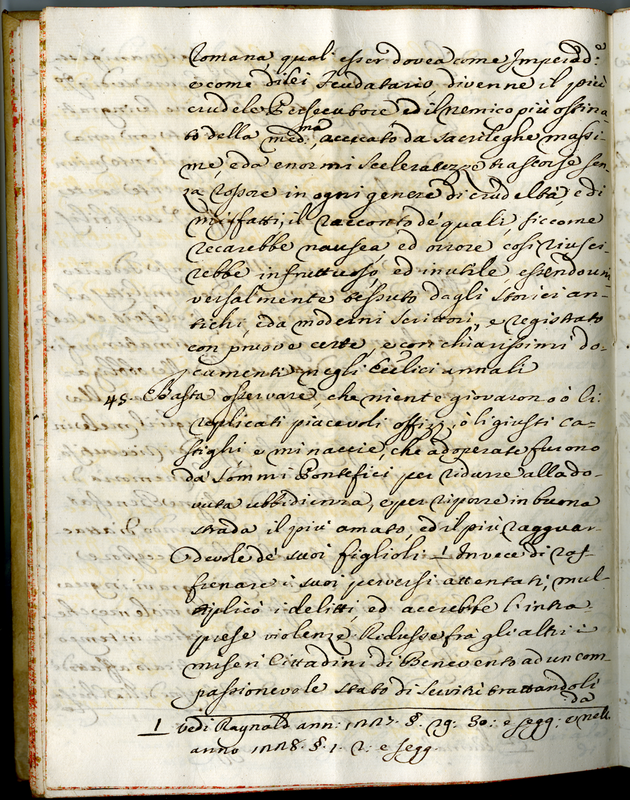 Romana, qual esser dovea come Imperad.e
e come di lei feudatario, divenne il più
crudele Persecutore ed il nemico più ostina
to della med.ma, acciecato da sacrileghe massi
me, e da enormi sceleratezze trascorse sen
za rossore in ogni genere di crudeltà, e di
misfatti; il racconto de' quali, siccome
recarebbe nausea ed orrore, così riusci
rebbe infruttuoso, ed inutile essendo uni
versalmente tessuto dagli storici an-
tichi, e da moderni scrittori, e registrato
con pruove certe, e con chiarissimi do-
cumenti negli annali
45. Basta osservare, che niente giovarono ò li
replicati piacevoli offizj, ò li giusti ca-
stighi e minaccie, che adoperate furono
da Sommi Pontefici per ridurre alla do-
vuta ubbidienza, e per riporre in buona
strada il più amato, ed il più ragguar
devole de' suoi figlioli: 1 Invece di raf
frenare i suoi perversi attentati, mul-
tiplicò i delitti, ed accrebbe l'intra-
prese violenze. Ridusse fra gli altri i
miseri Cittadini di Benevento ad un com
passionevole stato di servitù trattandoli
da
1 vedi Raynald ann: 1227. §. 29: 30: e segg: e nell
anno 1228. §. 1. 2: e segg.